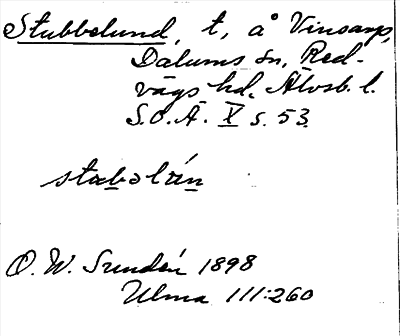 Stubbelund, t, å Vinsarp,
Dalums sn, Red-
vägs hd. Älvsb. l.
S.O.Ä. X s. 53.
stabəlán
O. W. Sundén 1898
Ulma 111:260